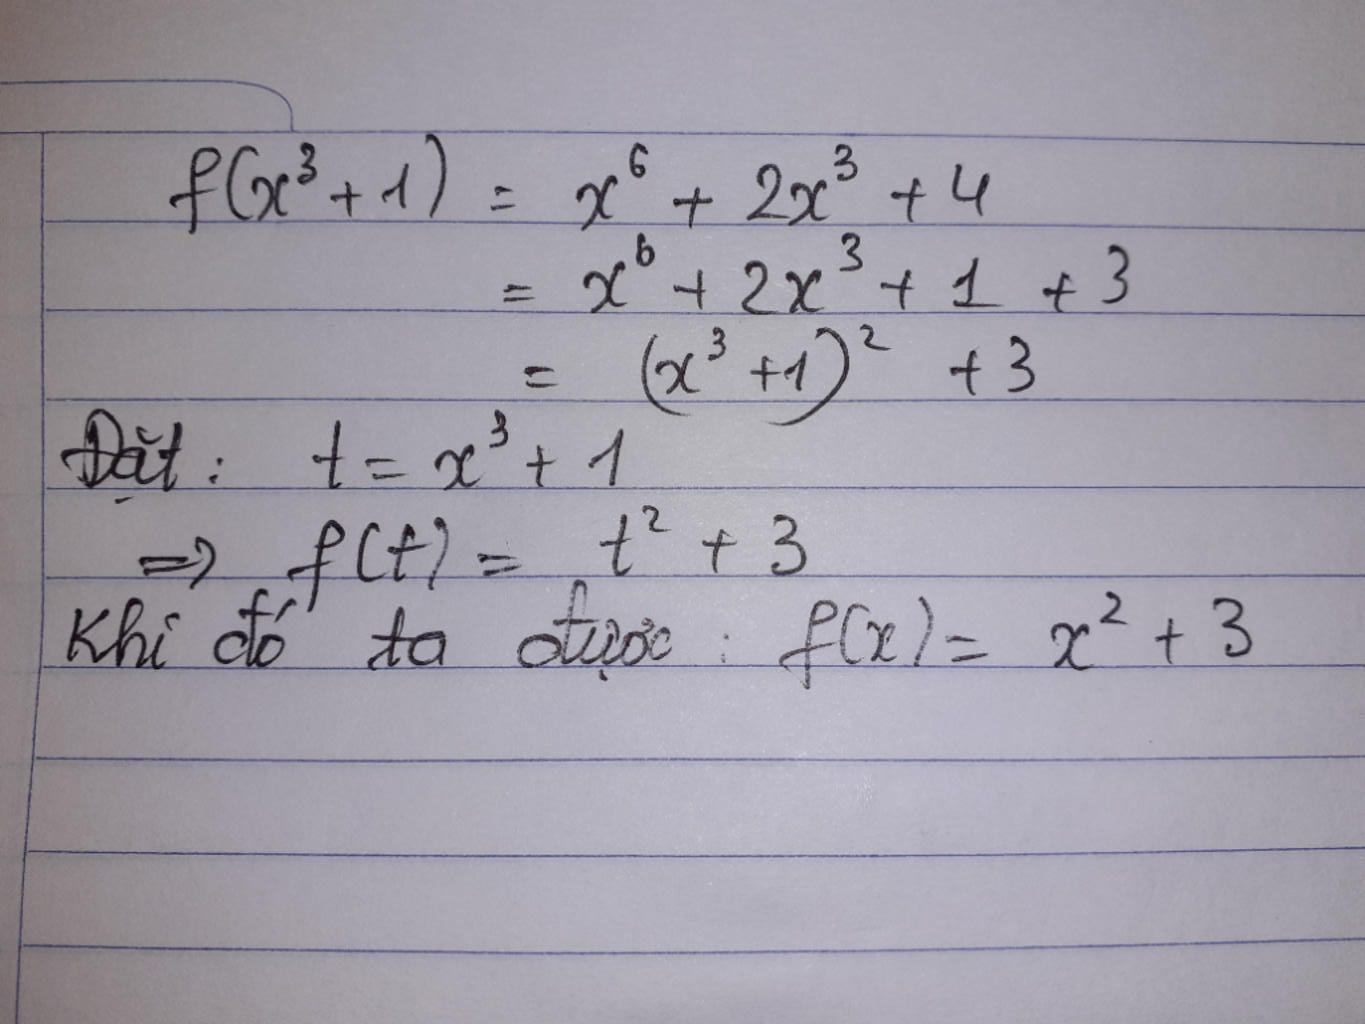 f(x³ + 1) = x⁶ + 2x³ + 4
= x⁶ + 2x³ + 1 + 3
= (x³ + 1)² + 3
Đặt: t = x³ + 1
⇒ f(t) = t² + 3
Khi đó ta được: f(x) = x² + 3